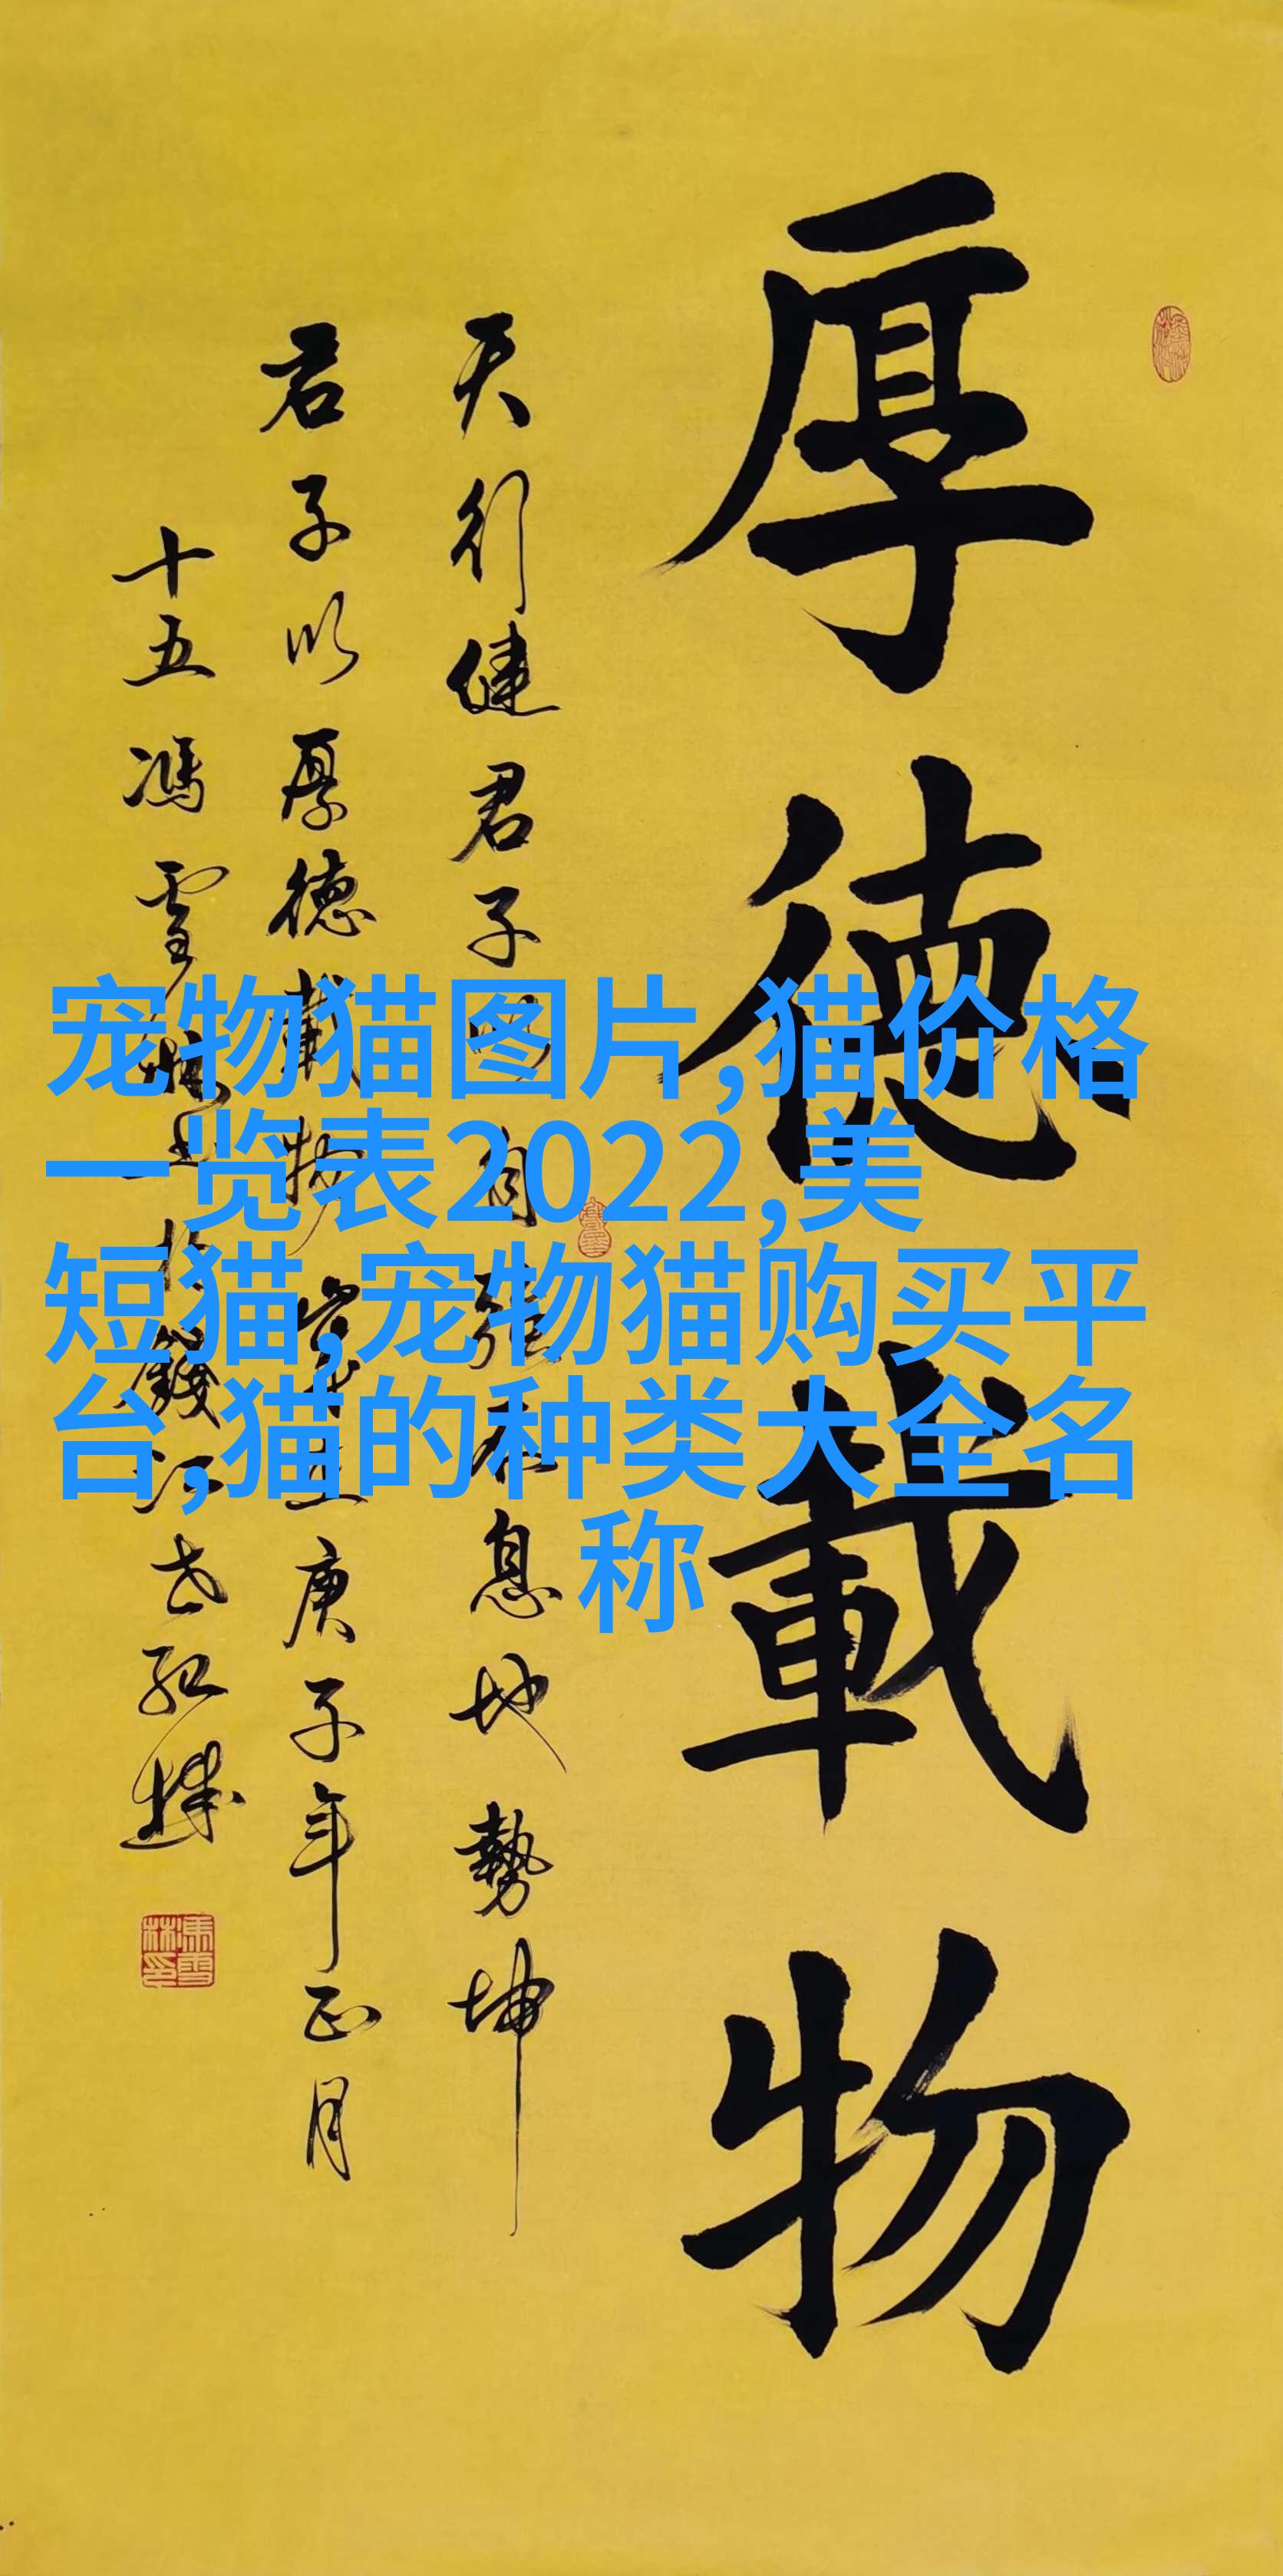 厚德載物
天行健君子以自強不息地勢坤
君子以厚德載物 歲在庚子年正月
十五馮雪林書於錢江
宠物猫图片,猫价格
一览表2022,美
短猫,宠物猫购买平
台,猫的种类大全名
称
馮雪
林印